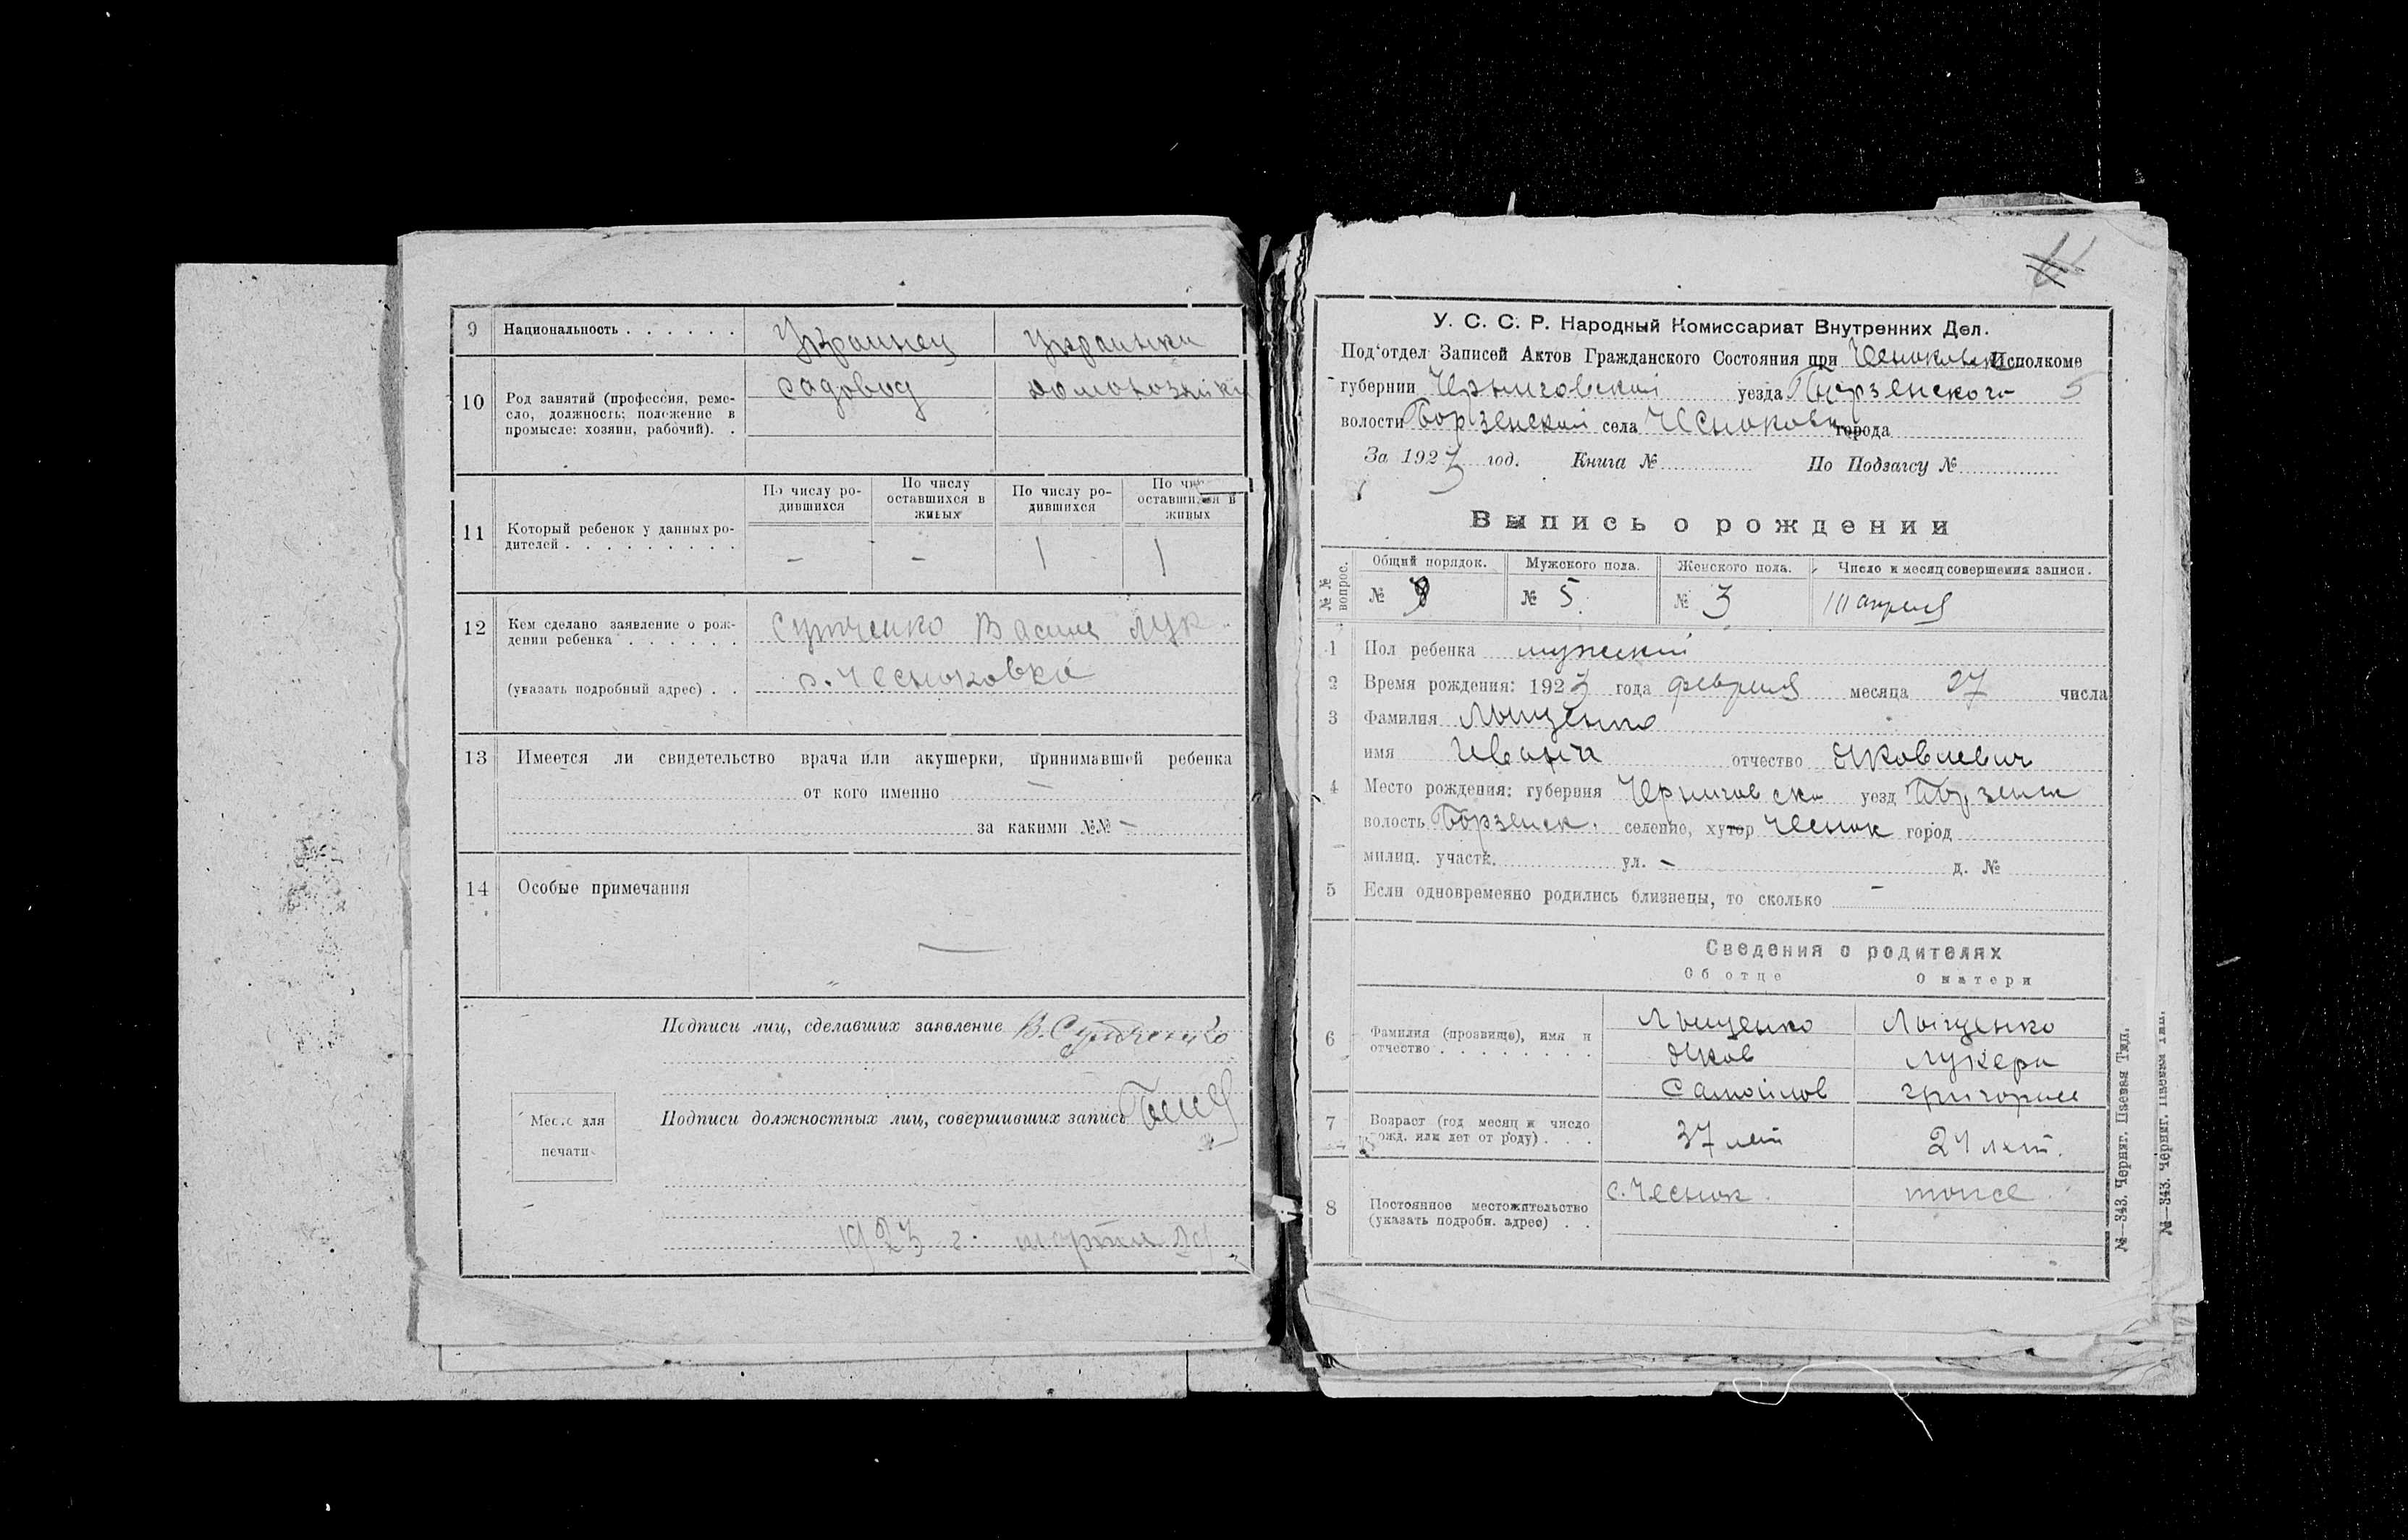 9 Национальность . . . . . . Украинец Украинка
10 Род занятий (профессия, реме-
сло, должность; положение в
промысле: хозяин, рабочий). .
садовод домохозяйка
11 Который ребенок у данных ро-
дителей . . . . . . . . .
По числу ро-
дившихся
По числу
оставшихся в
живых
По числу ро-
дившихся
По чи
оставшихся в
живых
- - 1 1
12 Кем сделано заявление о рож-
дении ребенка . . . . . .
Василь Лук
(указать подробный адрес) . .
с. Чесноковка
13 Имеется ли свидетельство врача или акушерки, принимавшей ребенка
от кого именно —
за какими №№ —
14 Особые примечания
—
Подписи лиц, сделавших заявление В.
Подписи должностных лиц, совершивших запись
Место для
печати
1923 г. марта
У. С. С. Р. Народный Комиссариат Внутренних Дел.
Под'отдел Записей Актов Гражданского Состояния при Исполкоме
губернии Черниговской уезда Борзенского 5
волости Борзенской села города
За 1923 год. Книга № По Подзагсу №
Выпись о рождении
№№
вопрос.
Общий порядок. Мужского пола. Женского пола. Число и месяц совершения записи.
№ № 5. № 3 апреля
1 Пол ребенка мужской
2 Время рождения: 1923 года февраля месяца 27 числа
3 Фамилия Лыщенко
имя Иван отчество Яковлевич
4 Место рождения: губерния Черниговска уезд Борзенск
волость Борзенск. селение, хутор Чеснок город
милиц. участк. ул. — д. №
5 Если одновременно родились близнецы, то сколько —
Сведения о родителях
Об отце О матери
6 Фамилия (прозвище), имя и
отчество . . . . . . . .
Лыщенко Лыщенко
Яков Лукера
Самойлов Григорьев
7 Возраст (год месяц и число
рожд. или лет от роду) . . .
37 лет 24 лет.
8 Постоянное местожительство
(указать подробн. адрес) . .
с. Чеснок. тоже
№—343. Черниг. Цвевая Тип.